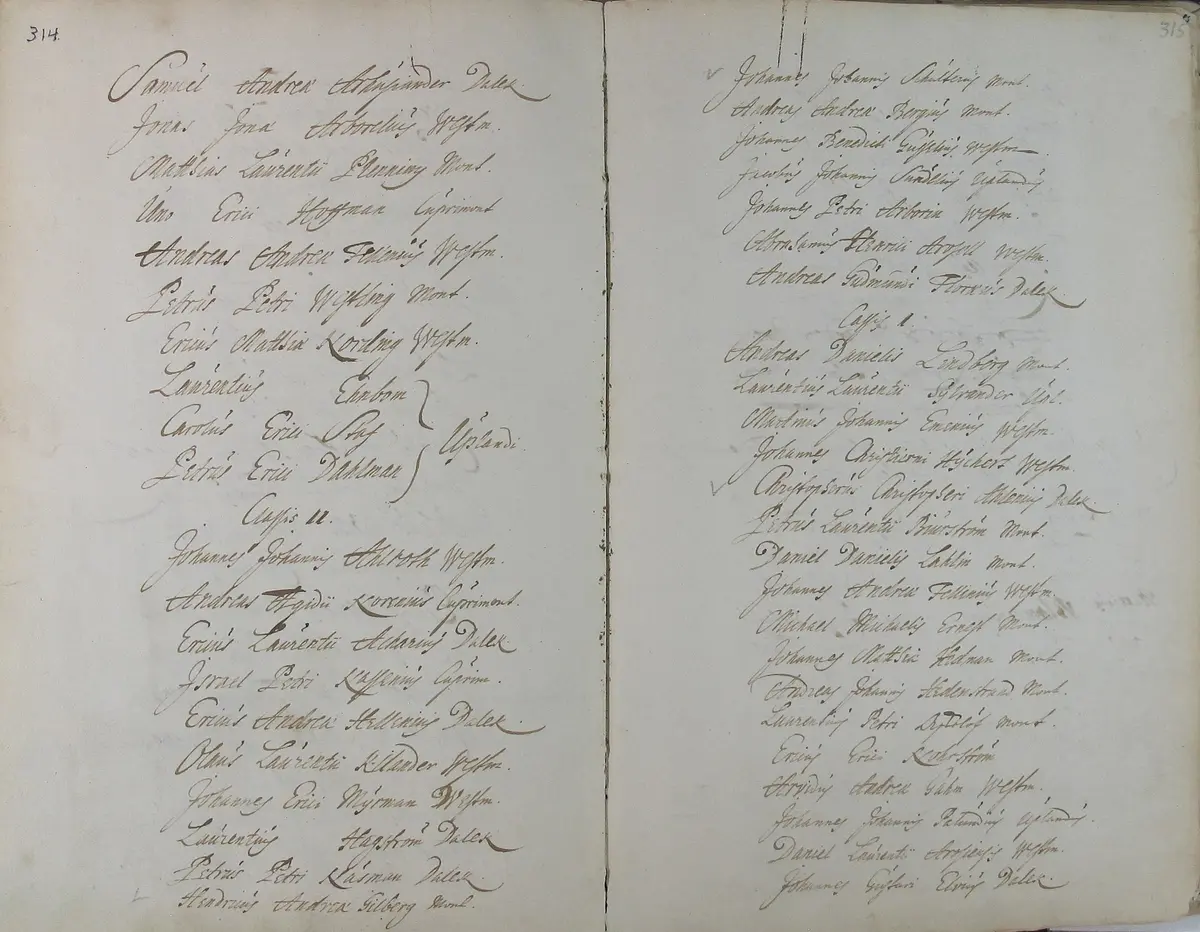 314.
Samuel Andreæ Arhusiander Dalek.
Jonas Jonæ Arborelius Westm.
Matthias Laurentii Plenning Mont.
Uno Erici Hoffman Cuprimont
Andreas Andreæ Fellenius Westm.
Petrus Petri Westling Mont.
Ericus Matthiæ Kording Westm.
Laurentius Ehnbom
Carolus Erici Staf Uplandi.
Petrus Erici Dahlman
Classis II.
Johannes Johannis Ahlroth Westm.
Andreas Ægidii Korenius Cuprimont.
Ericus Laurentii Acharius Dalek.
Israel Petri Cuprim.
Ericus Andreæ Hellenius Dalek.
Olaus Laurentii Kilander Westm.
Johannes Erici Myrman Westm.
Laurentius Hagström Dalek
Petrus Petri Kåsman Dalek.
Hendricus Andreæ Gilberg Mont.
315
Johannes Johannis Schultzius Mont.
Andreas Andreæ Bergius Mont.
Johannes Benedicti Westm
Jacobus Johannis Sundelius Uplandus
Johannes Petri Arborin Westm.
Abrahamus Henrici Arosell Westm.
Andreas Gudmundi Floræus Dalek.
Classis I.
Andreas Danielis Lindberg Mont.
Laurentius Laurentii Sylvander Upl.
Martinus Johannis Emenius Westm.
Johannes Christierni Hyckert Westm.
Christopherus Christopheri Ahlenius Dalek.
Petrus Laurentii Biurström Mont.
Daniel Danielis Lahlin Mont.
Johannes Andreæ Fellenius Westm.
Michael Michaelis Ernst Mont.
Johannes Matthiæ Hedman Mont.
Andreas Johannis Hedenstrand Mont.
Laurentius Petri Mont.
Ericus Erici
Arvidus Andreæ Gahm Westm.
Johannes Johannis Uplandus.
Daniel Laurentii Arosiensis Westm.
Johannes Gustavi Elvius Dalek.